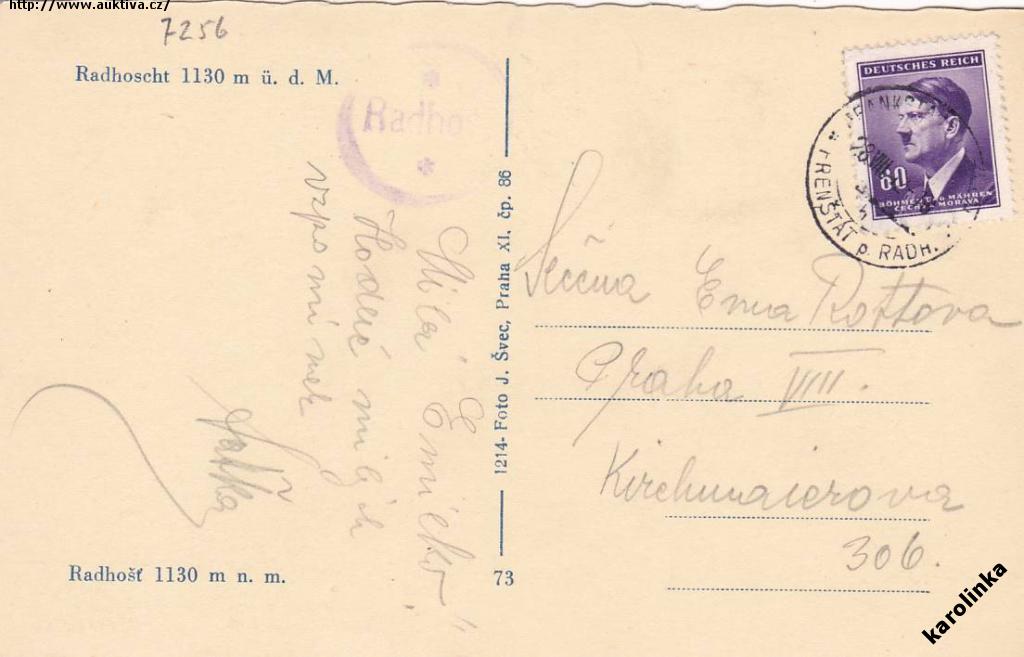 http://www.auktiva.cz/
7256
Radhoscht 1130 m ü. d. M.
Radhoš
DEUTSCHES REICH
60
BÖHMEN UND MÄHREN
ČECHY A MORAVA
FRENŠTÁT p. RADH.
Milá Emilko!
Hodně milých
vzpomínek
1214- Foto J. Švec, Praha XI, čp. 86
73
Slečna
Ema Rottova
Praha VIII.
Kirchmaierova
306.
Radhošť 1130 m n. m.
karolinka